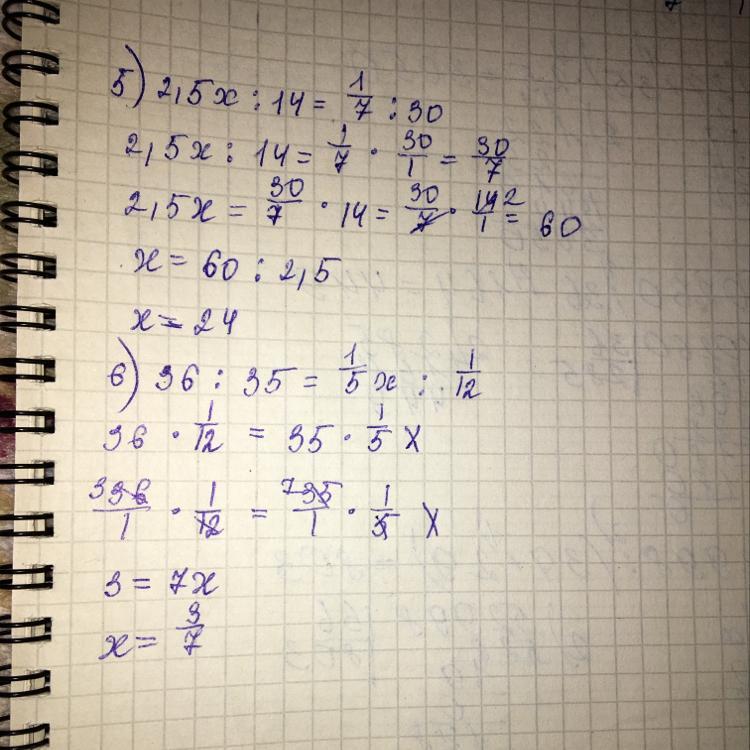 5) 2,5x : 14 = 1/7 : 30
2,5x : 14 = 1/7 · 30/1 = 30/7
2,5x = 30/7 · 14 = 30/7 · 14 2/1 = 60
x = 60 : 2,5
x = 24
6) 36 : 35 = 1/5 x : 1/12
36 · 1/12 = 35 · 1/5 x
3 36/1 · 1/12 = 7 35/1 · 1/5 x
3 = 7x
x = 3/7